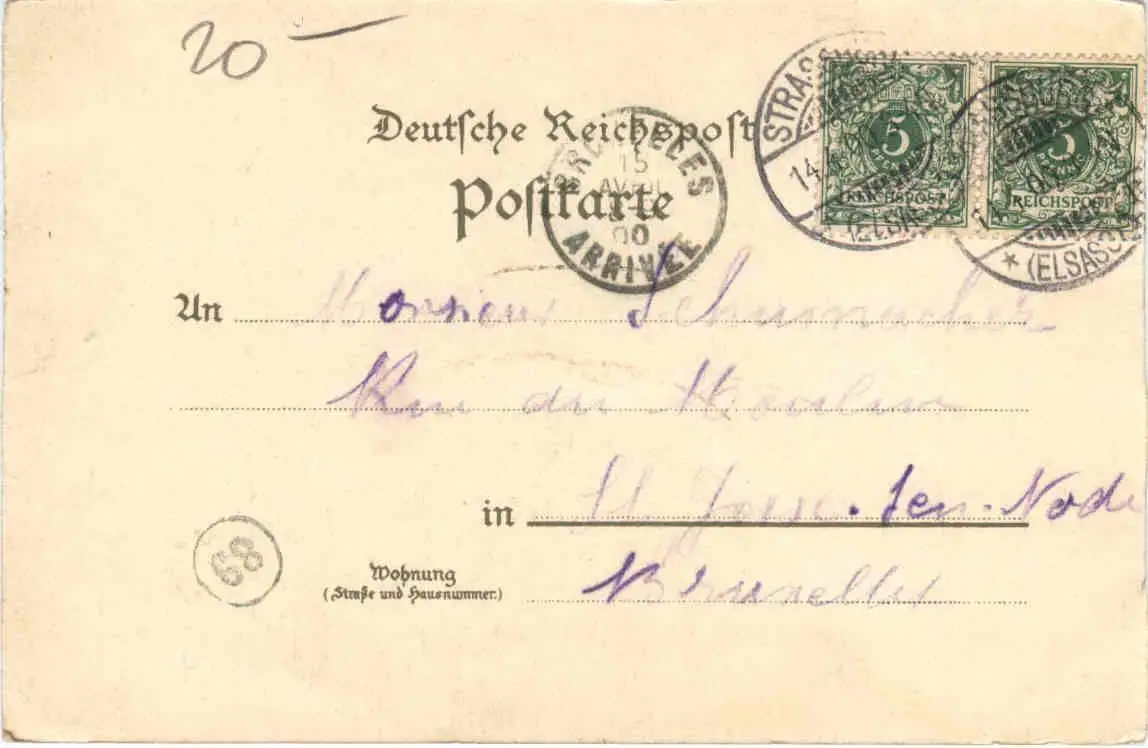 20
Deutsche Reichspost
Postkarte
BRUXELLES
15
AVRIL
00
ARRIVÉE
STRASSBURG
14.
(ELSASS)
5
PFENNIG
REICHSPOST
STRASSBURG
14.
* (ELSASS)
5
PFENNIG
REICHSPOST
An Monsieur Schumacher
Rue du Moulin
in St Josse-ten-Node
Wohnung
(Straße und Hausnummer.)
Bruxelles
68